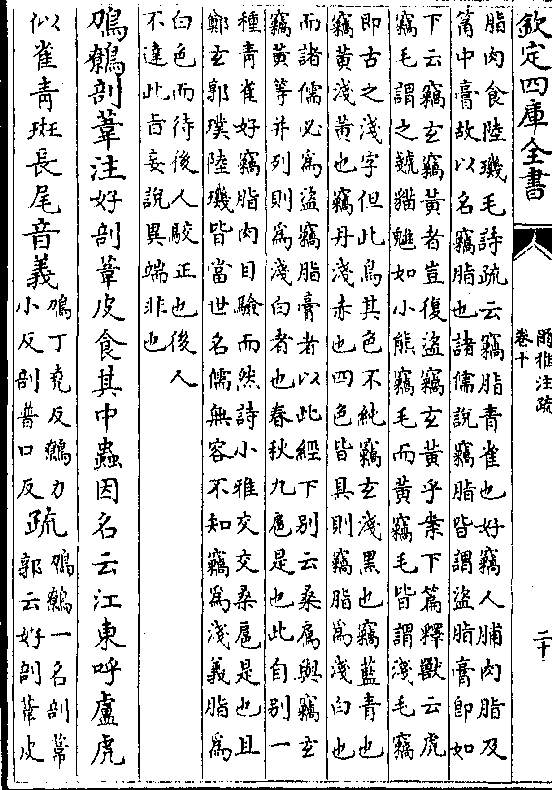 欽定四庫全書
爾雅注疏
卷十
二十
脂肉食陸璣毛詩疏云竊脂青雀也好竊人脯肉脂及
筩中膏故以名竊脂也諸儒說竊脂皆謂盜脂膏即如
下云竊玄竊黃者豈復盜竊玄黃乎案下篇釋獸云虎
竊毛謂之虦貓魋如小熊竊毛而黃竊毛皆謂淺毛竊
即古之淺字但此鳥其色不純竊玄淺黑也竊藍青也
竊黃淺黃也竊丹淺赤也四色皆具則竊脂為淺白也
而諸儒必為盜竊脂膏者以此經下別云桑鳸與竊玄
竊黃等并列則為淺白者也春秋九鳸是也此自別一
種青雀好竊脂肉目驗而然詩小雅交交桑扈是也且
鄭玄郭璞陸璣皆當世名儒無容不知竊為淺義脂為
白色而待後人駮正也後人
不達此旨妄說異端非也
鳭鷯剖葦注好剖葦皮食其中蟲因名云江東呼盧虎
似雀青斑長尾音義
鳭丁堯反鷯力
小反剖普口反
疏
鳭鷯一名剖葦
郭云好剖葦皮